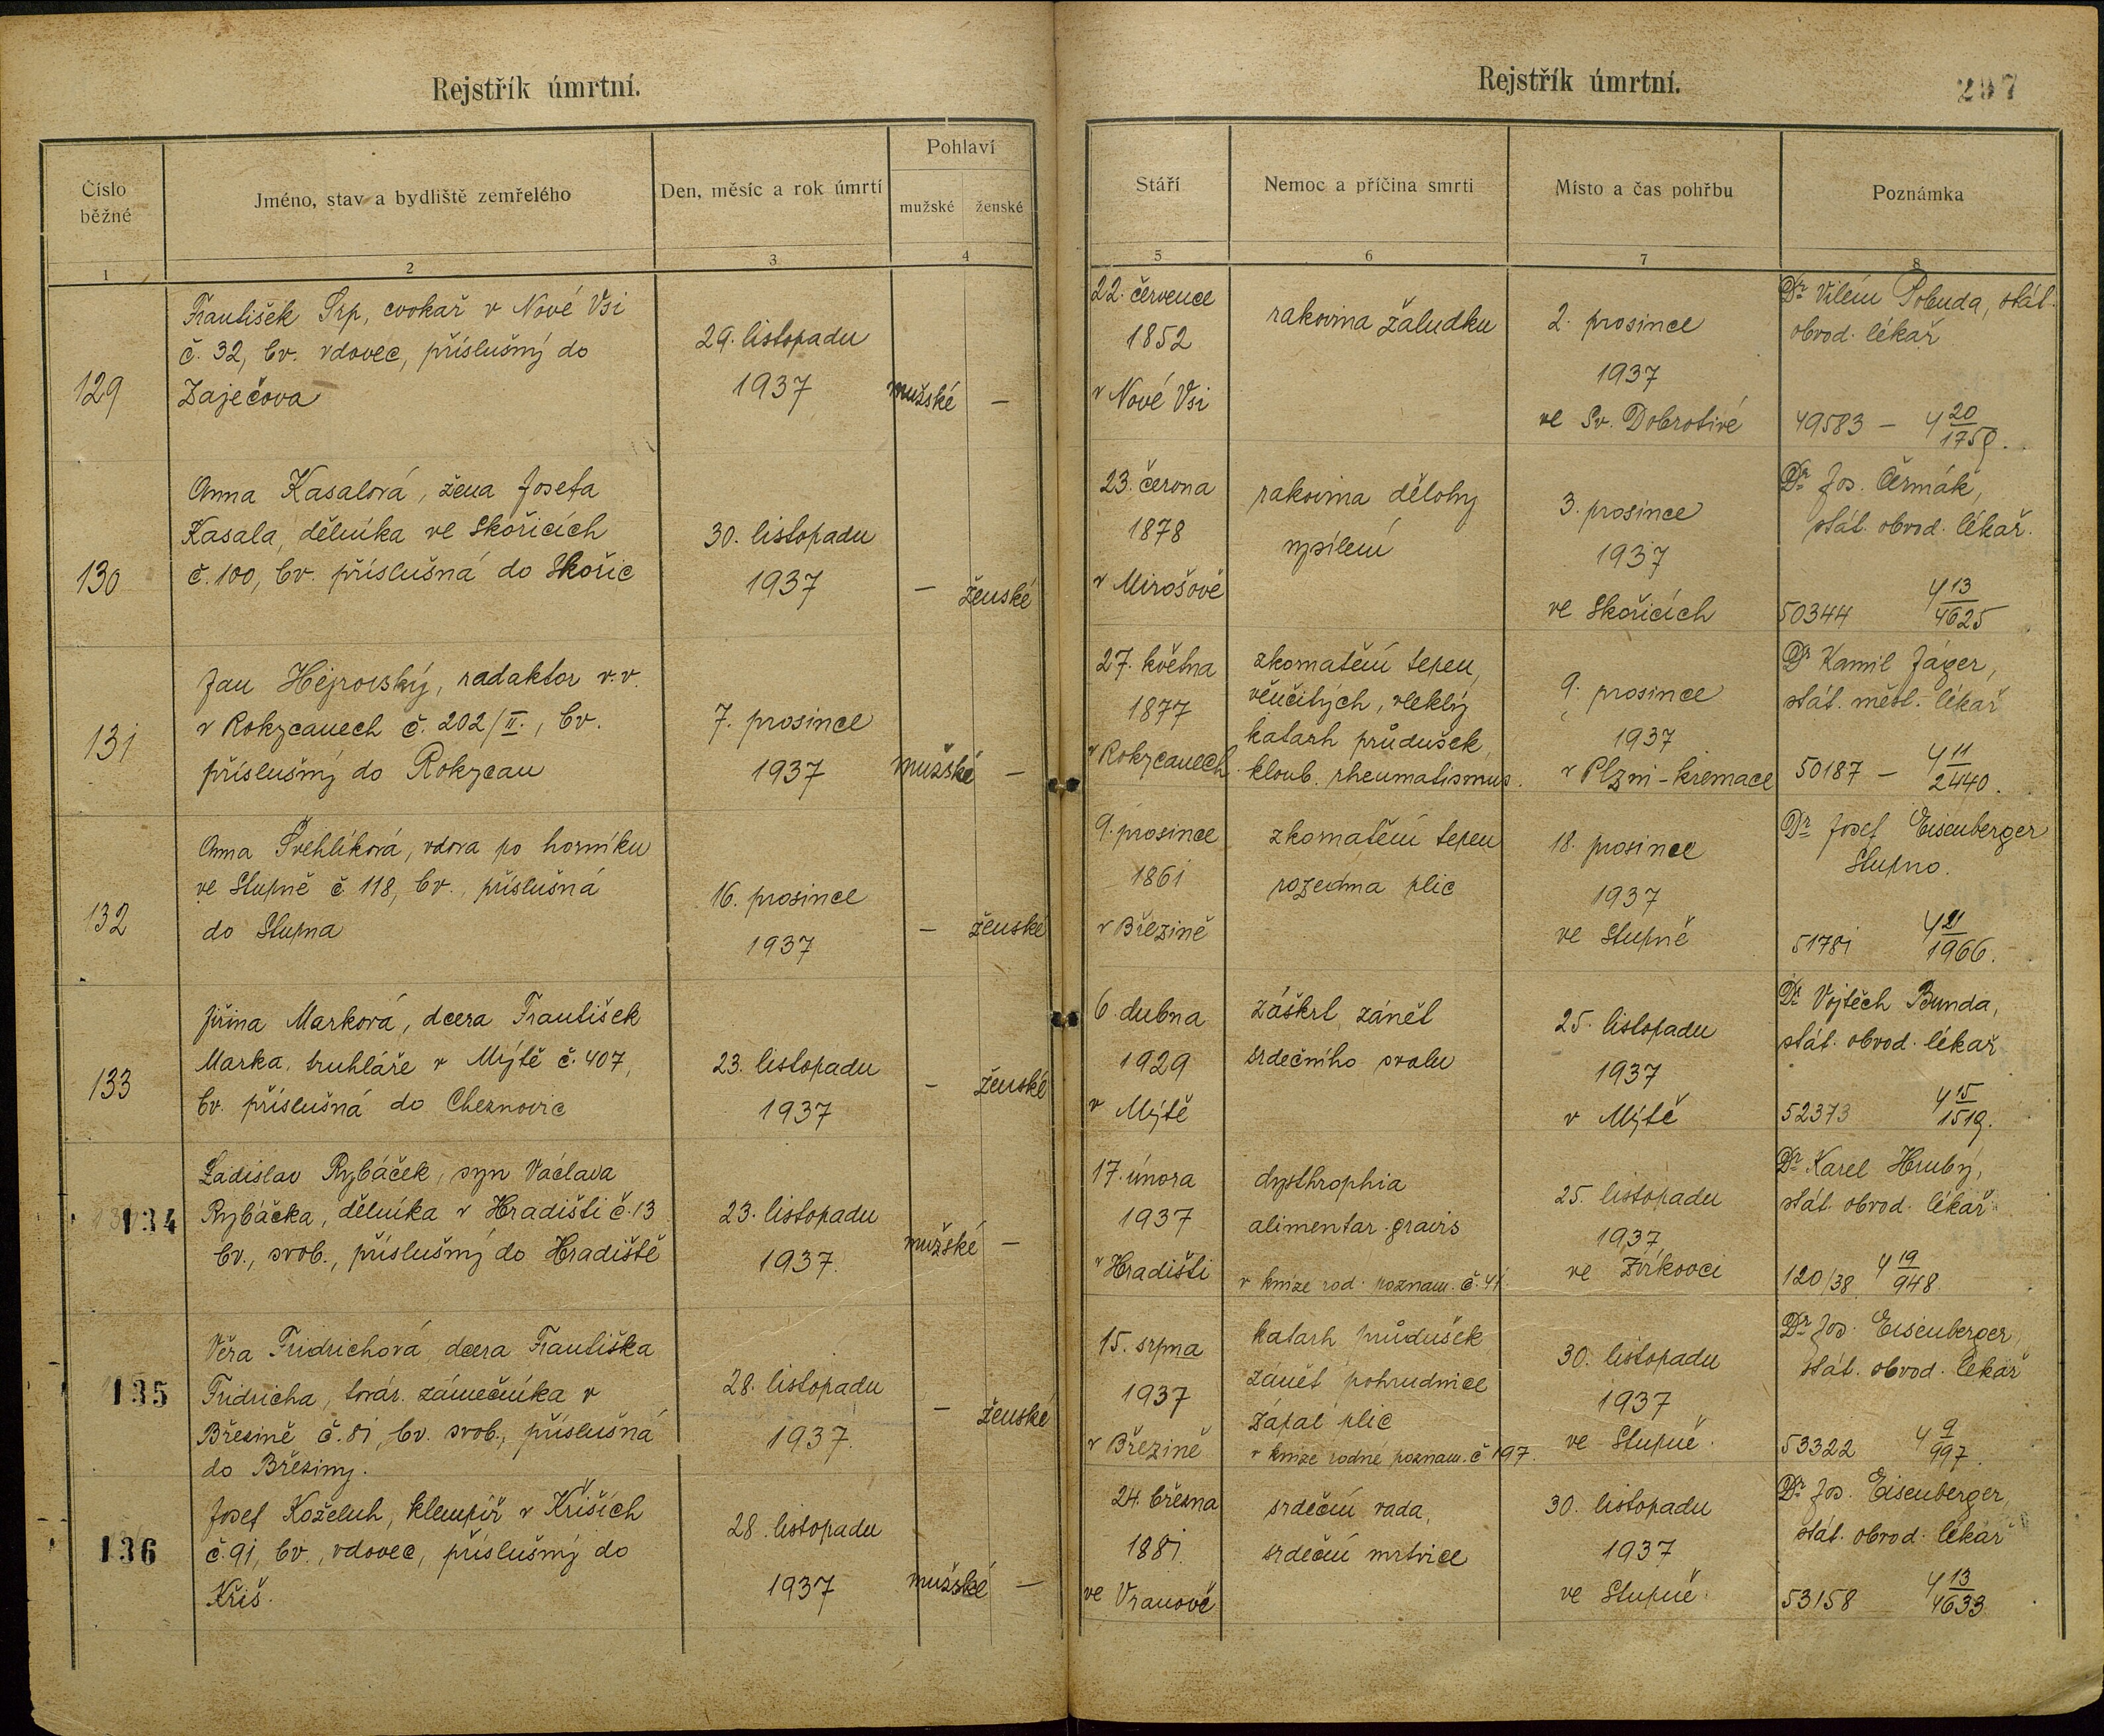 Rejstřík úmrtní.
Číslo
běžné
Jméno, stav a bydliště zemřelého
Den, měsíc a rok úmrtí
Pohlaví
mužské
ženské
1
2
3
4
129
František Srp, cvokař v Nové Vsi
č. 32, bv. vdovec, příslušný do
Zaječova
29. listopadu
1937
mužské
—
130
Anna Kasalová, žena Josefa
Kasala, dělníka ve Skořicích
č. 100, bv. příslušná do Skořic
30. listopadu
1937
—
ženské
131
Jan Hejrovský, redaktor v.v.
v Rokycanech č. 202/II., bv.
příslušný do Rokycan
7. prosince
1937
mužské
—
132
Anna Švehlíková, vdova po horníku
ve Stupně č. 118, bv. příslušná
do Stupna
16. prosince
1937
—
ženské
133
Jiřina Marková, dcera František
Marka, truhláře v Mýtě č. 407,
bv. příslušná do Cheznovic
23. listopadu
1937
—
ženské
134
Ladislav Rybáček, syn Václava
Rybáčka, dělníka v Hradišti č. 13
bv., svob., příslušný do Hradiště
23. listopadu
1937.
mužské
—
135
Věra Fridrichová dcera Františka
Fridricha, továr. zámečníka v
Březině č. 81, bv. svob., příslušná
do Březiny.
28. listopadu
1937.
—
ženské
136
Josef Koželuh, klempíř v Křiších
č. 91, bv., vdovec, příslušný do
Kříš.
28. listopadu
1937
mužské
—
Rejstřík úmrtní.
297
Stáří
Nemoc a příčina smrti
Místo a čas pohřbu
Poznámka
5
6
7
8
22. července
1852
v Nové Vsi
rakovina žaludku
2. prosince
1937
ve Sv. Dobrotivé
Dr Vilém Pobuda, stát.
obvod. lékař
49583 — 4 20/1759.
23. června
1878
v Mirošově
rakovina dělohy
vysílení
3. prosince
1937
ve Skořicích
Dr Jos. Čermák,
stát. obvod. lékař.
50344 4 13/4625
27. května
1877
v Rokycanech
zkornatění tepen
věnčitých, vleklý
katarh průdušek,
kloub. rheumatismus.
9. prosince
1937
v Plzni - kremace
Dr Kamil Jäger,
stát. měst. lékař
50187 — 4 11/2440.
9. prosince
1861
v Březině
zkornatění tepen
rozedma plic
18. prosince
1937
ve Stupně
Dr Josef Eisenberger
Stupno.
51781 4 21/1966.
6. dubna
1929
v Mýtě
záškrt, zánět
srdečního svalu
25. listopadu
1937
v Mýtě
Dr Vojtěch Bunda,
stát. obvod. lékař
52373 4 15/1519.
17. února
1937
v Hradišti
dysthrophia
alimentar. gravis
v knize rod. poznam. č. 41
25. listopadu
1937
ve Zvíkovci
Dr Karel Hrubý,
stát. obvod. lékař
120/38 4 19/948.
15. srpna
1937
v Březině
katarh průdušek
zánět pohrudnice
zápal plic
v knize rodné poznam. č. 197.
30. listopadu
1937
ve Stupně.
Dr Jos. Eisenberger,
stát. obvod. lékař
53322 4 9/997.
24. března
1881.
ve Vranově
srdeční vada,
srdeční mrtvice
30. listopadu
1937
ve Stupně
Dr Jos. Eisenberger,
stát. obvod. lékař
53158 4 13/4633